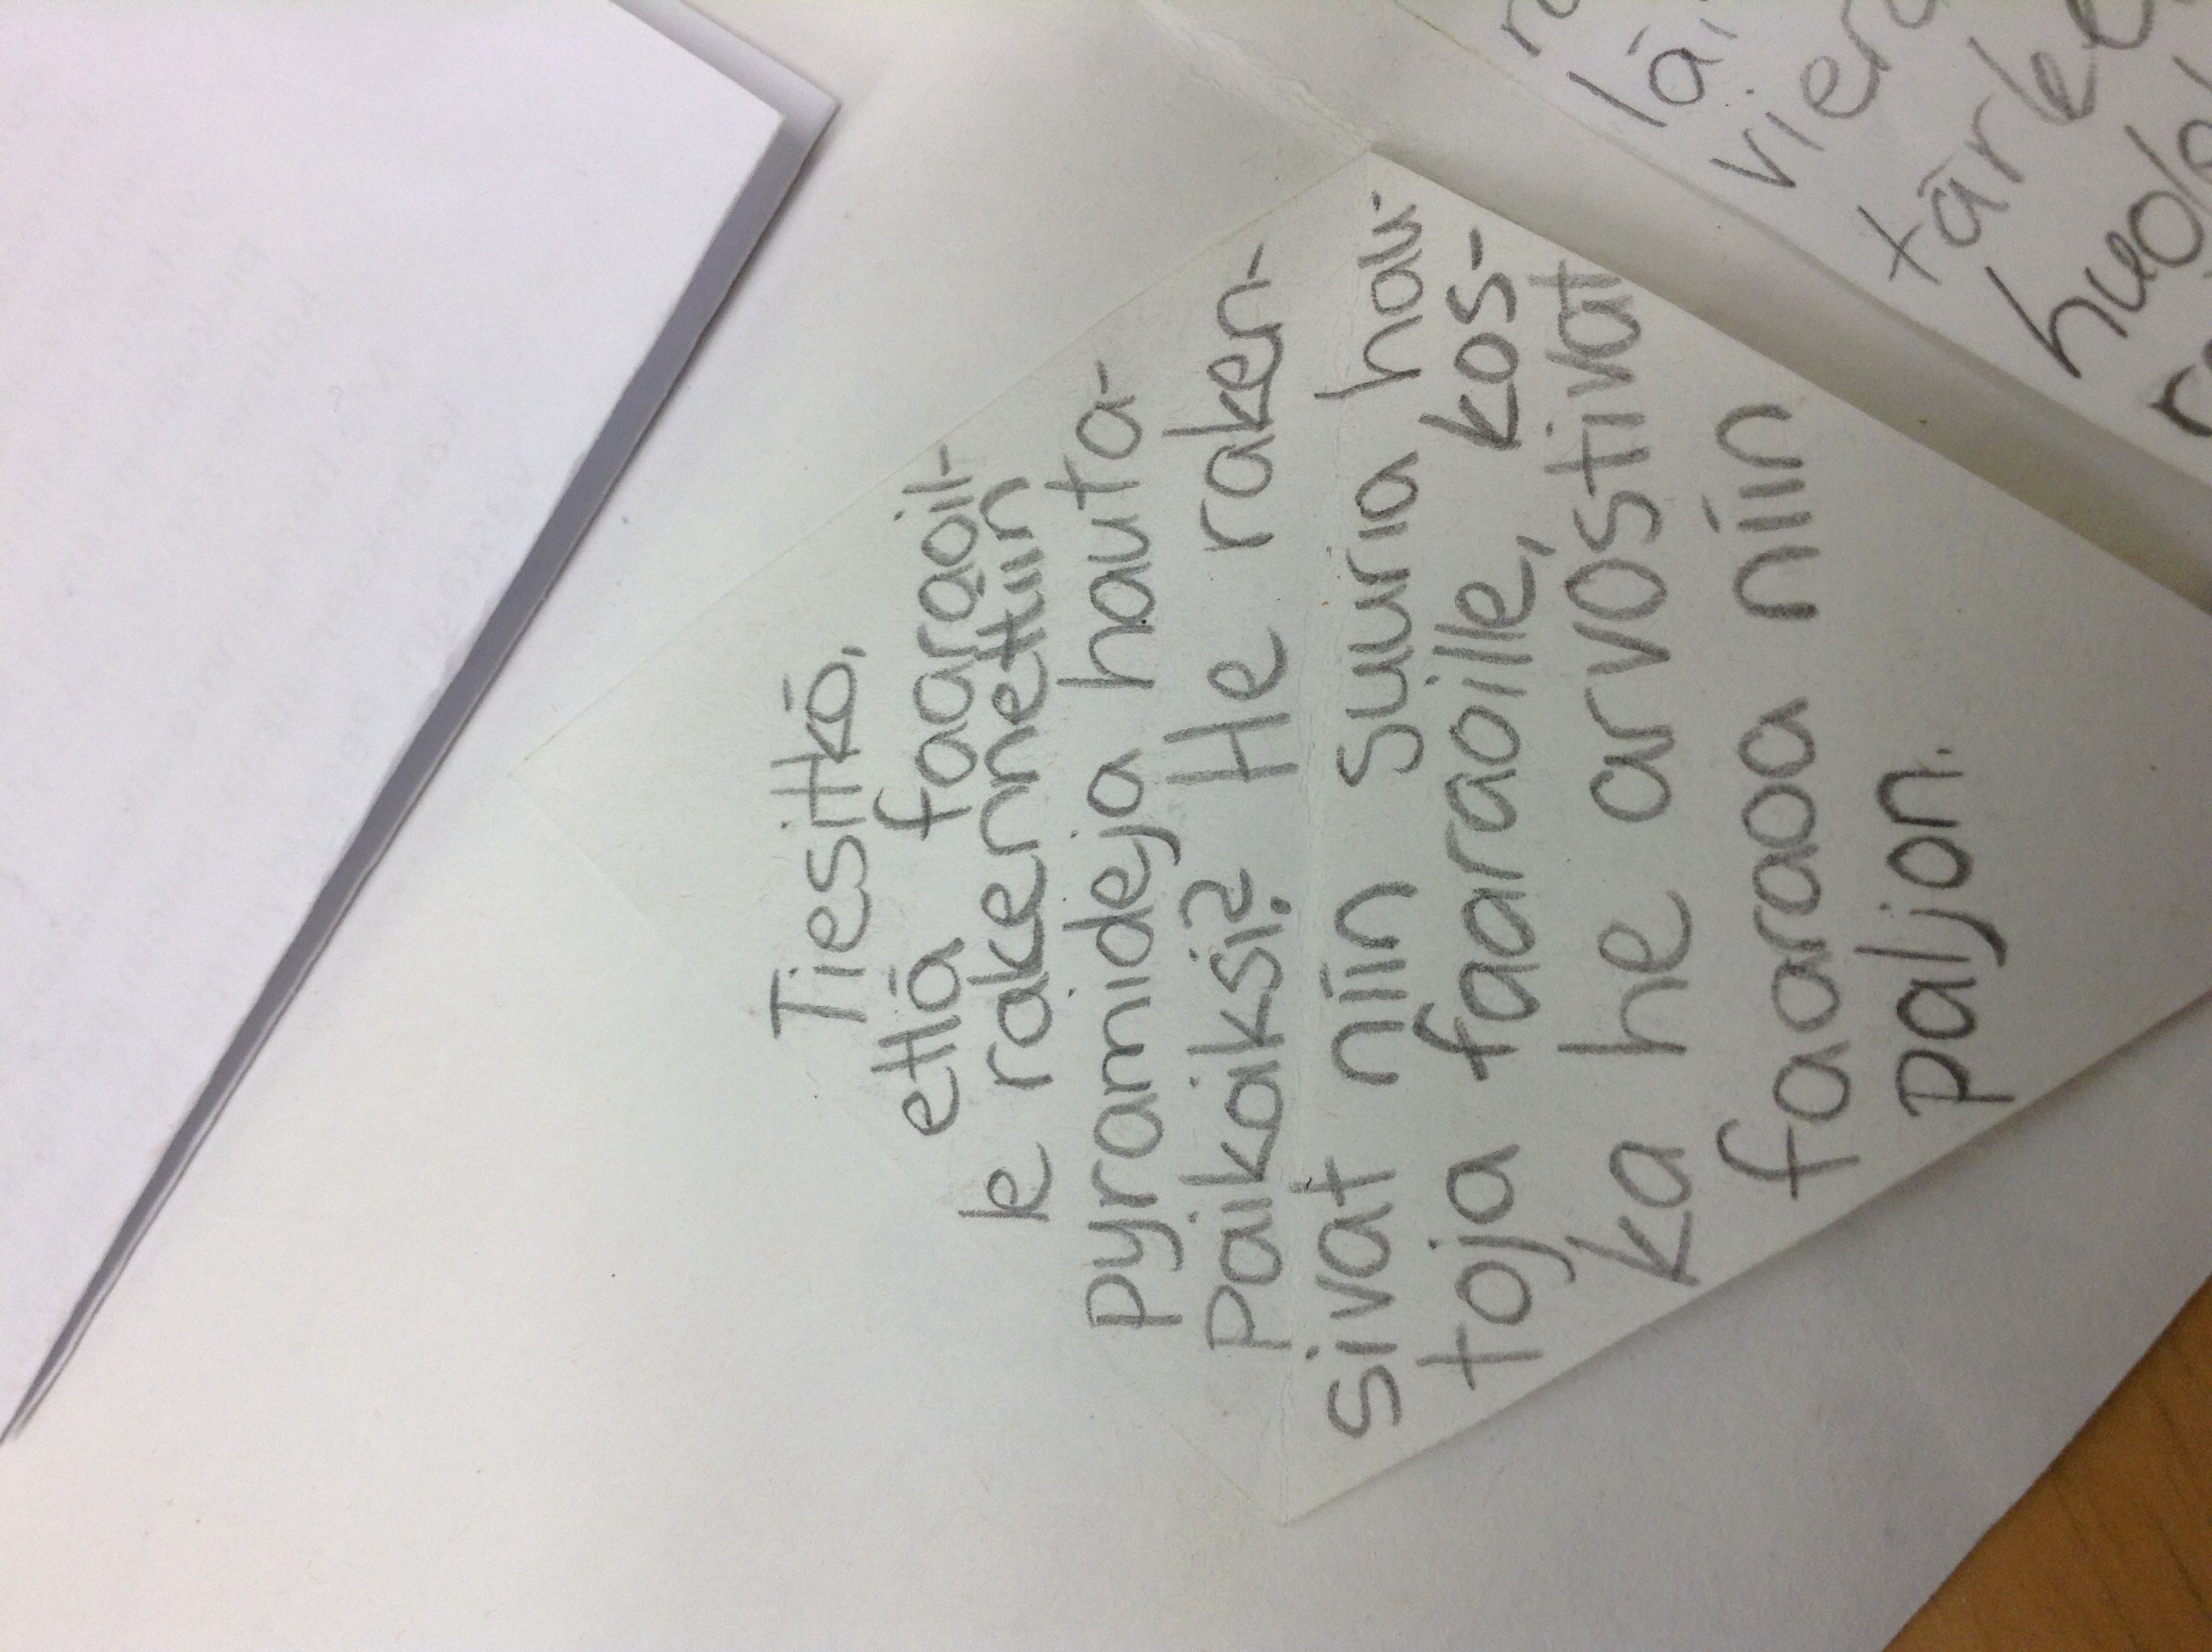 Tiesitkö,
että faaraoil-
le rakennettiin
pyramideja hauta-
paikoiksi? He raken-
sivat niin suuria hau-
toja faaraoille, kos-
ka he arvostivat
faaraoa niin
paljon.